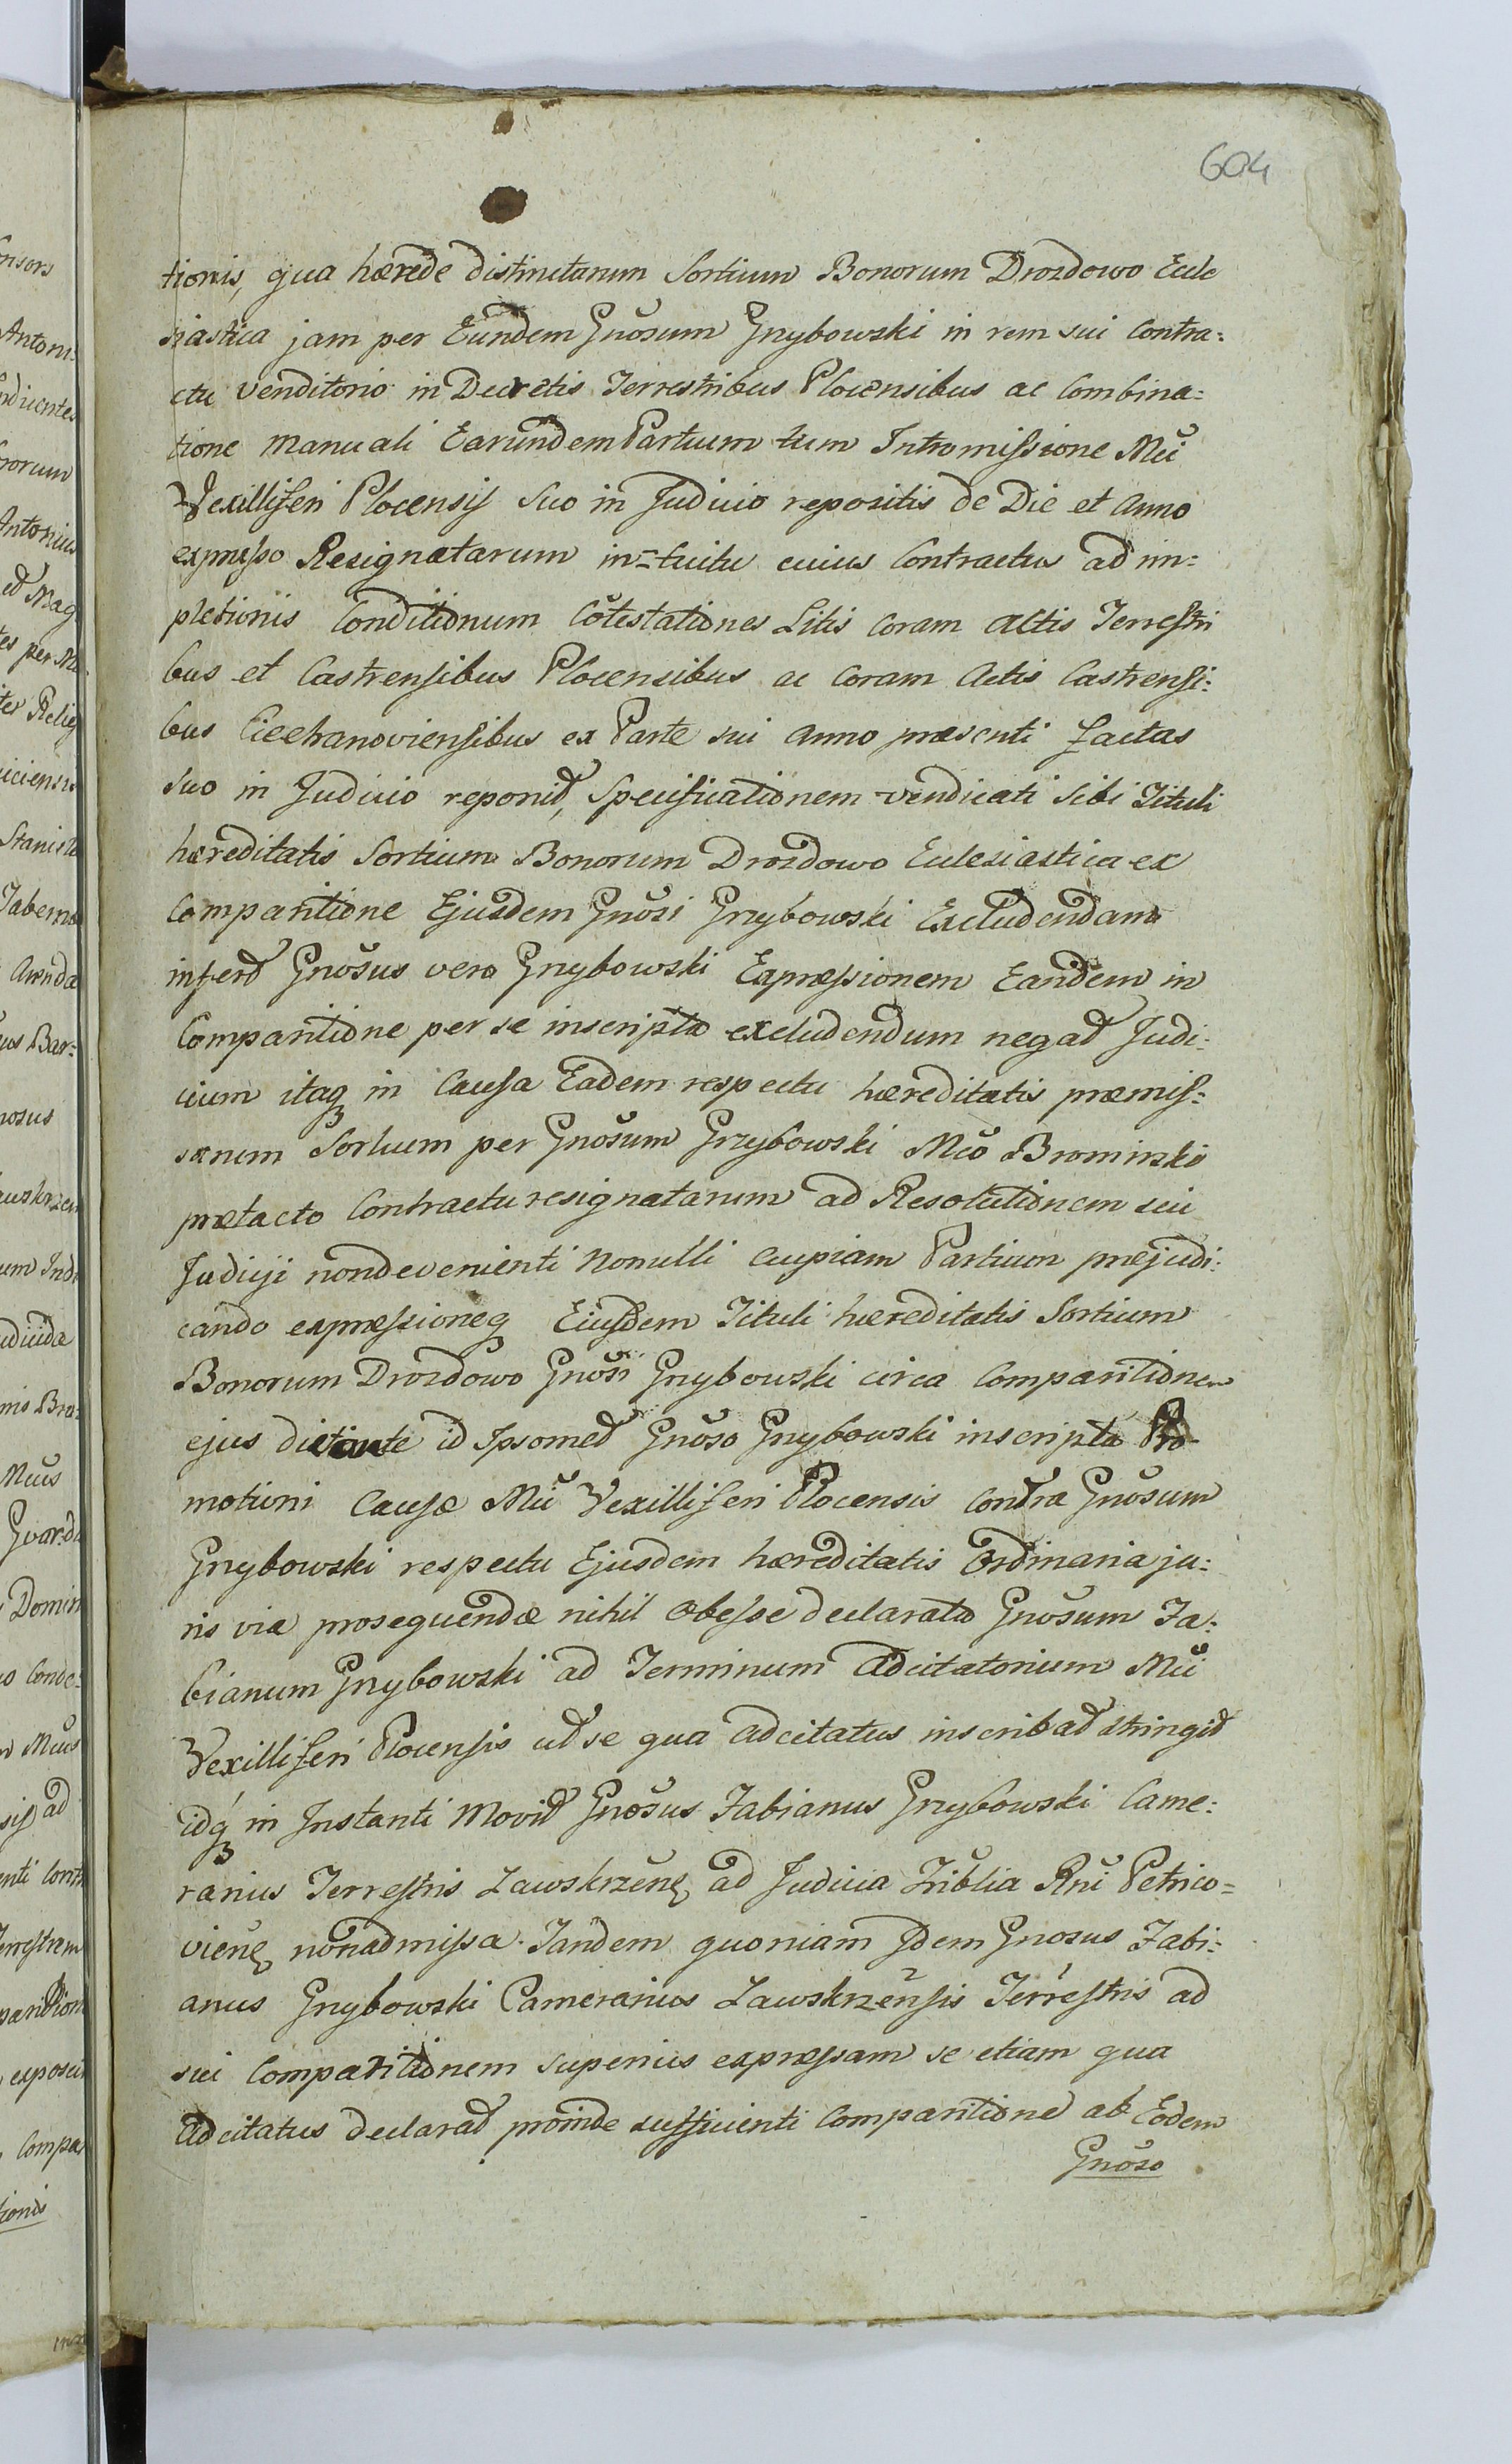 604
tionis, qua hærede distinctarum Sortium Bonorum Drozdowo Eccle
siastica jam per Eundem Gnōsum Grzybowski in rem sui Contra:
ctu venditorio in Decretis Terrestribus Plocensibus ac Combina:
tione manuali Earundem Partium tum Intromissione Mci
Vexilliferi Plocensis Suo in Judicio repositis de Die et Anno
expresso Resignatarum in-tuitu cuius Contractus ad im:
pletionis Conditionum Cōtestationes Litis coram Actis Terrestri
bus et Castrensibus Plocensibus ac Coram Actis Castrensi:
bus Ciechanoviensibus ex Parte sui Anno præsenti factas
Suo in Judicio reponit, Specificationem vendicati sibi Tituli
hæreditatis Sortium Bonorum Drozdowo Ecclesiastica ex
Comparitione Ejusdem Gnōsi Grzybowski Excludendam
infert Gnōsus vero Grzybowski Expressionem Eandem in
Comparitione per se inscripta excludendum negat Judi:
cium itaq in Causa Eadem respectu hæreditatis præmis:
sarum Sortium per Gnōsum Grzybowski Mco Brominski
prætacto Contractu resignatarum ad Resolutionem sui
Judicii nondevenienti nonulli cuipiam Partium præjudi:
cando expressioneq Eiusdem Tituli hæreditatis Sortium
Bonorum Drozdowo Gnōsi Grzybowski circa Comparitionem
ejus id Ipsomet Gnōso Grzybowski inscripta Pro
motioni Causæ Mci Vexilliferi Plocensis contra Gnōsum
Grzybowski respectu Ejusdem hæreditatis Ordinaria ju:
ris via prosequendæ nihil obesse declarata Gnōsum Fa:
bianum Grzybowski ad Terminum Adcitatorium Mci
Vexilliferi Plocensis ut se qua adcitatus inscribat stringit
idq in Instanti Movit Gnōsus Fabianus Grzybowski Came:
rarius Terrestris Zawskrzēnę ad Judicia Trib̄lia Rni Petrico=
vienę nōnadmissa. Tandem quoniam Idem Gnosus Fabi:
anus Grzybowski Camerarius Zawskrzēnsis Terrestris ad
sui Comparitionem superius expressam se etiam qua
Adcitatus declarat proinde sufficienti Comparitione ab Eodem
Gnōso